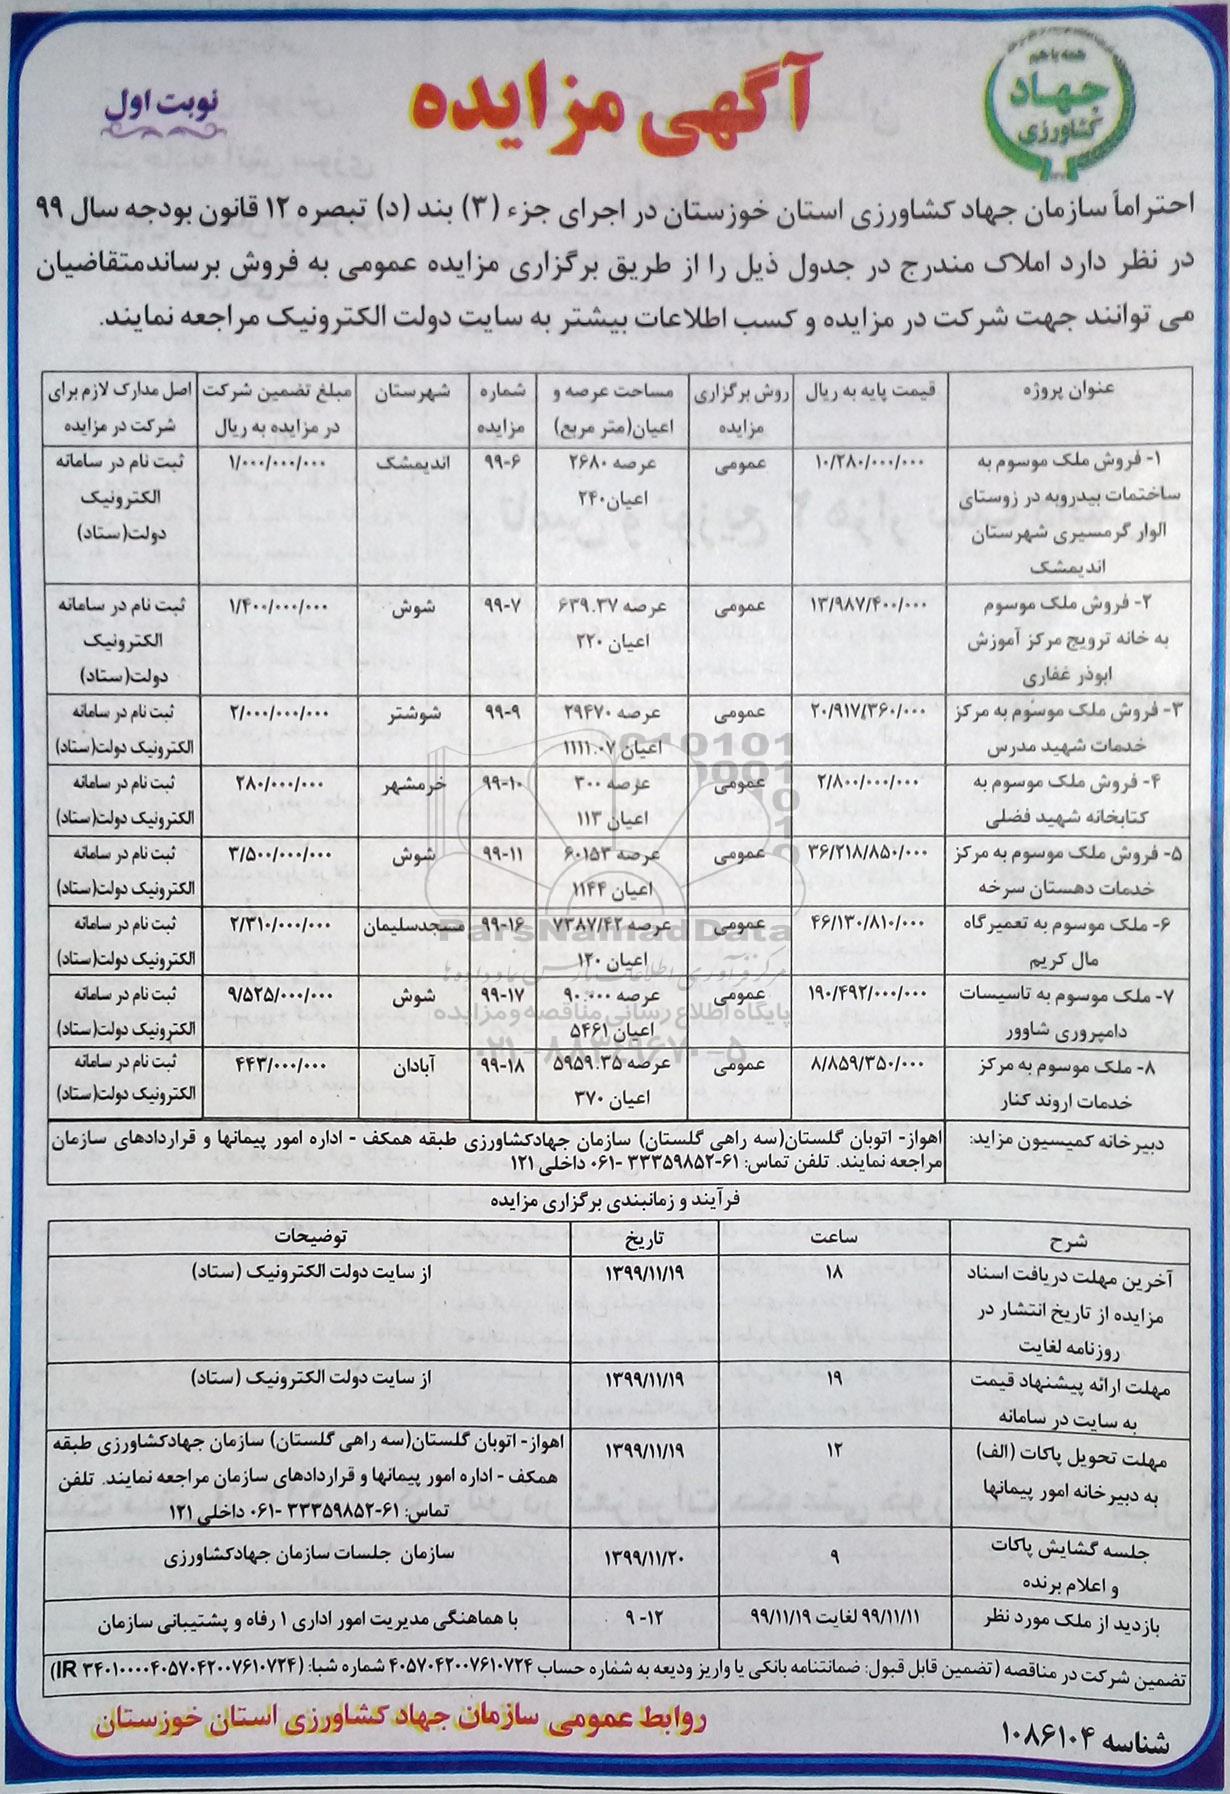 همه با هم
جهاد
کشاورزی
آگهی مزایده
نوبت اول
احتراماً سازمان جهاد کشاورزی استان خوزستان در اجرای جزء (۳) بند (د) تبصره ۱۲ قانون بودجه سال ۹۹
در نظر دارد املاک مندرج در جدول ذیل را از طریق برگزاری مزایده عمومی به فروش برساندمتقاضیان
می توانند جهت شرکت در مزایده و کسب اطلاعات بیشتر به سایت دولت الکترونیک مراجعه نمایند.
عنوان پروژه | قیمت پایه به ریال | روش برگزاری مزایده | مساحت عرصه و اعیان(متر مربع) | شماره مزایده | شهرستان | مبلغ تضمین شرکت در مزایده به ریال | اصل مدارک لازم برای شرکت در مزایده
۱- فروش ملک موسوم به ساختمات بیدروبه در زوستای الوار گرمسیری شهرستان اندیمشک | ۱۰/۲۸۰/۰۰۰/۰۰۰ | عمومی | عرصه ۲۶۸۰ اعیان۲۴۰ | ۹۹-۶ | اندیمشک | ۱/۰۰۰/۰۰۰/۰۰۰ | ثبت نام در سامانه الکترونیک دولت(ستاد)
۲- فروش ملک موسوم به خانه ترویج مرکز آموزش ابوذر غفاری | ۱۳/۹۸۷/۴۰۰/۰۰۰ | عمومی | عرصه ۶۳۹.۳۷ اعیان ۲۲۰ | ۹۹-۷ | شوش | ۱/۴۰۰/۰۰۰/۰۰۰ | ثبت نام در سامانه الکترونیک دولت(ستاد)
۳- فروش ملک موسوم به مرکز خدمات شهید مدرس | ۲۰/۹۱۷/۳۶۰/۰۰۰ | عمومی | عرصه ۲۹۴۷۰ اعیان ۱۱۱۱.۰۷ | ۹۹-۹ | شوشتر | ۲/۰۰۰/۰۰۰/۰۰۰ | ثبت نام در سامانه الکترونیک دولت(ستاد)
۴- فروش ملک موسوم به کتابخانه شهید فضلی | ۲/۸۰۰/۰۰۰/۰۰۰ | عمومی | عرصه ۳۰۰ اعیان ۱۱۳ | ۹۹-۱۰ | خرمشهر | ۲۸۰/۰۰۰/۰۰۰ | ثبت نام در سامانه الکترونیک دولت(ستاد)
۵- فروش ملک موسوم به مرکز خدمات دهستان سرخه | ۳۶/۲۱۸/۸۵۰/۰۰۰ | عمومی | عرصه ۶۰۱۵۳ اعیان ۱۱۴۴ | ۹۹-۱۱ | شوش | ۳/۵۰۰/۰۰۰/۰۰۰ | ثبت نام در سامانه الکترونیک دولت(ستاد)
۶- ملک موسوم به تعمیرگاه مال کریم | ۴۶/۱۳۰/۸۱۰/۰۰۰ | عمومی | عرصه ۷۳۸۷/۴۲ اعیان ۱۲۰ | ۹۹-۱۶ | مسجدسلیمان | ۲/۳۱۰/۰۰۰/۰۰۰ | ثبت نام در سامانه الکترونیک دولت(ستاد)
۷- ملک موسوم به تاسیسات دامپروری شاوور | ۱۹۰/۴۹۲/۰۰۰/۰۰۰ | عمومی | عرصه ۹۰.۰۰۰ اعیان ۵۴۶۱ | ۹۹-۱۷ | شوش | ۹/۵۲۵/۰۰۰/۰۰۰ | ثبت نام در سامانه الکترونیک دولت(ستاد)
۸- ملک موسوم به مرکز خدمات اروند کنار | ۸/۸۵۹/۳۵۰/۰۰۰ | عمومی | عرصه ۵۹۵۹.۳۵ اعیان ۳۷۰ | ۹۹-۱۸ | آبادان | ۴۴۳/۰۰۰/۰۰۰ | ثبت نام در سامانه الکترونیک دولت(ستاد)
دبیرخانه کمیسیون مزاید: | اهواز- اتوبان گلستان(سه راهی گلستان) سازمان جهادکشاورزی طبقه همکف - اداره امور پیمانها و قراردادهای سازمان
مراجعه نمایند. تلفن تماس: ۶۱-۳۳۳۵۹۸۵۲ -۰۶۱ داخلی ۱۲۱
ParsNamadData
مرکز فرآوری اطلاعات پارس نماد داده ها
پایگاه اطلاع رسانی مناقصه و مزایده
۰۲۱-۸۸۳۴۹۶۷۰-۵
فرآیند و زمانبندی برگزاری مزایده
شرح | ساعت | تاریخ | توضیحات
آخرین مهلت دریافت اسناد مزایده از تاریخ انتشار در روزنامه لغایت | ۱۸ | ۱۳۹۹/۱۱/۱۹ | از سایت دولت الکترونیک (ستاد)
مهلت ارائه پیشنهاد قیمت به سایت در سامانه | ۱۹ | ۱۳۹۹/۱۱/۱۹ | از سایت دولت الکترونیک (ستاد)
مهلت تحویل پاکات (الف) به دبیرخانه امور پیمانها | ۱۲ | ۱۳۹۹/۱۱/۱۹ | اهواز- اتوبان گلستان(سه راهی گلستان) سازمان جهادکشاورزی طبقه همکف - اداره امور پیمانها و قراردادهای سازمان مراجعه نمایند. تلفن تماس: ۶۱-۳۳۳۵۹۸۵۲ -۰۶۱ داخلی ۱۲۱
جلسه گشایش پاکات و اعلام برنده | ۹ | ۱۳۹۹/۱۱/۲۰ | سازمان جلسات سازمان جهادکشاورزی
بازدید از ملک مورد نظر | ۹۹/۱۱/۱۱ لغایت ۹۹/۱۱/۱۹ | ۱۲- ۹ | با هماهنگی مدیریت امور اداری ۱ رفاه و پشتیبانی سازمان
تضمین شرکت در مناقصه (تضمین قابل قبول: ضمانتنامه بانکی یا واریز ودیعه به شماره حساب ۴۰۵۷۰۴۲۰۰۷۶۱۰۷۲۴ شماره شبا: (IR ۳۴۰۱۰۰۰۰۴۰۵۷۰۴۲۰۰۷۶۱۰۷۲۴)
شناسه ۱۰۸۶۱۰۴
روابط عمومی سازمان جهاد کشاورزی استان خوزستان